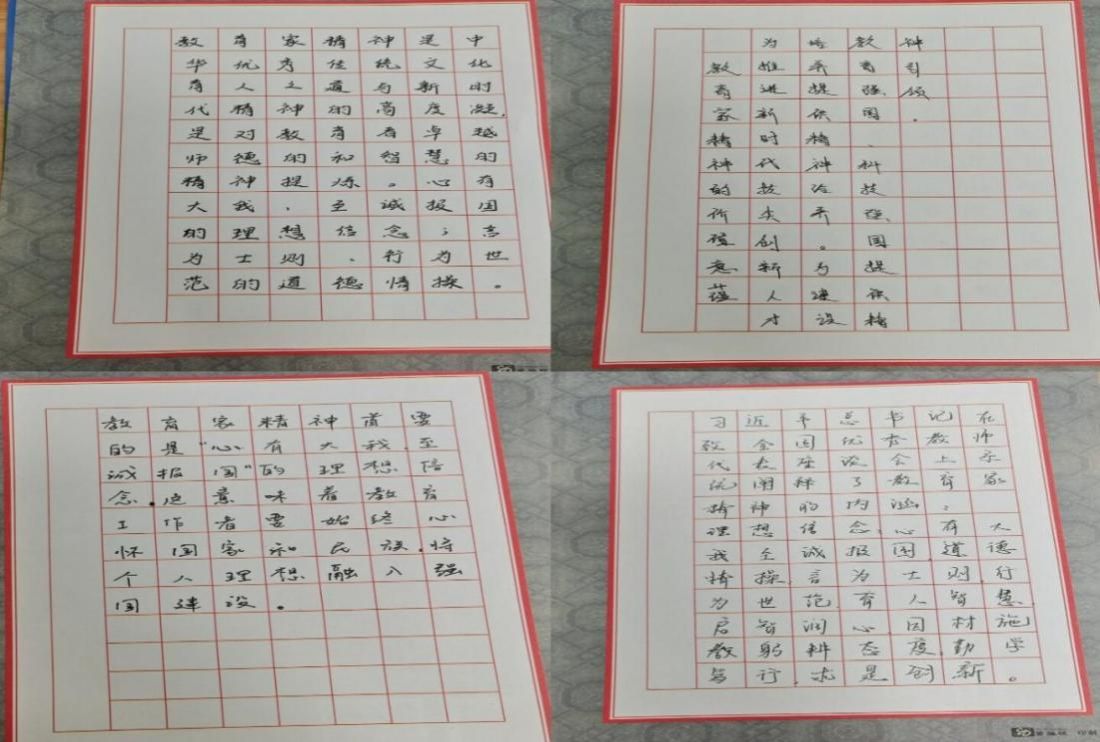 教育家精神是中
华优秀传统文化
育人之道与新时
代精神的高度凝,
是对教育者卓越
师德的和智慧的
精神提炼。心有
大我、至诚报国
的理想信念；言
为士则、行为世
范的道德情操。
教育家精神的所蕴意蕴
为推进新时代技术创新人才
培养提供精神养。为建设
教育强国、科技强国提供精
神引领。
教育家精神首要
的是“心有大我,至
诚报国”的理想信
念.这意味着教育
工作者要始终心
怀国家和民族,将
个人理想融入强
国建设。
习近平总书记在
致全国优秀教师
代表座谈会上系
统阐释了教育家
精神的内涵,
理想信念,心有大
我至诚报国,道德
情操,言为士则行
为世范,育人智慧,
启智润心因材施
教躬耕态度,勤学
笃行,求是创新。